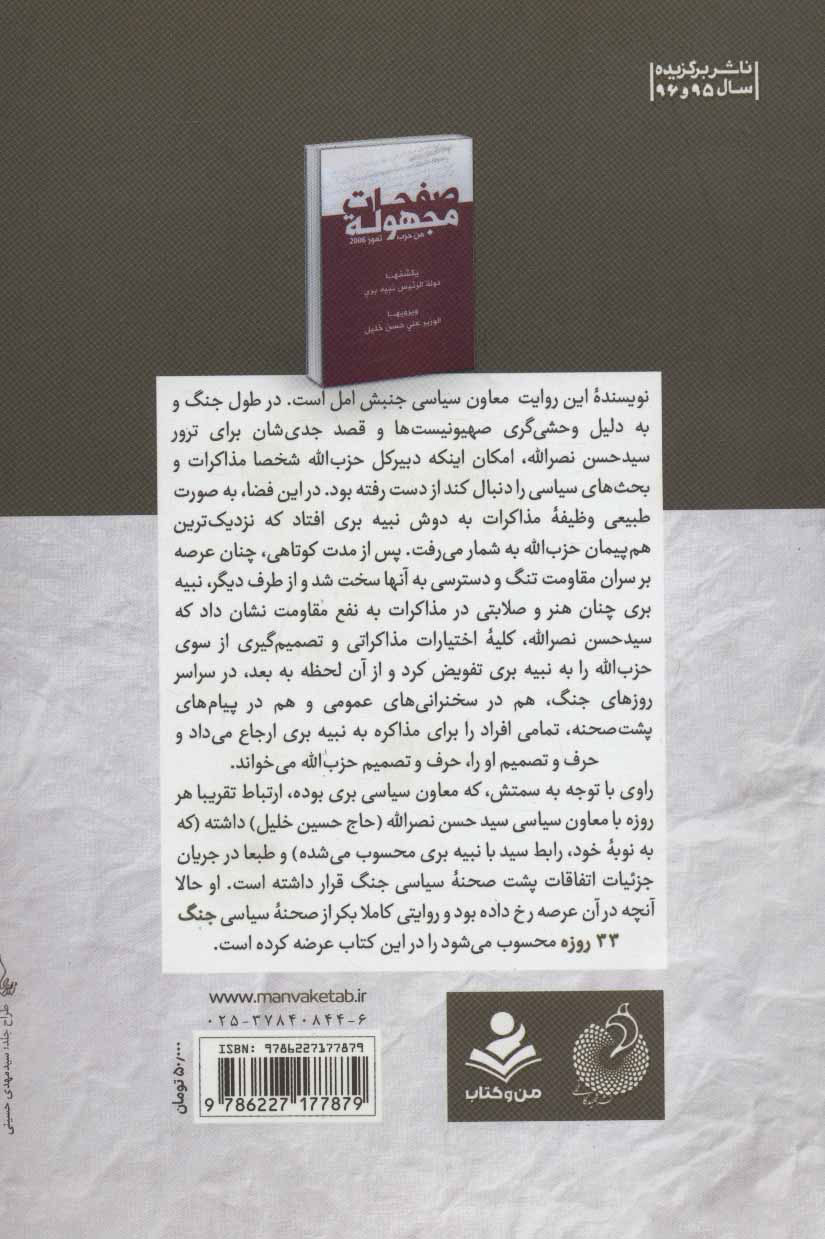 ناشر برگزیده
سال ۹۵ و ۹۶
صفحات
مجهولة
من حرب تموز 2006
يكشفها
دولة الرئيس نبيه بري
ويرويها
الوزير علي حسن خليل
نویسندهٔ این روایت معاون سیاسی جنبش امل است. در طول جنگ و
به دلیل وحشی‌گری صهیونیست‌ها و قصد جدی‌شان برای ترور
سیدحسن نصرالله، امکان اینکه دبیرکل حزب‌الله شخصا مذاکرات و
بحث‌های سیاسی را دنبال کند از دست رفته بود. در این فضا، به صورت
طبیعی وظیفهٔ مذاکرات به دوش نبیه بری افتاد که نزدیک‌ترین
هم‌پیمان حزب‌الله به شمار می‌رفت. پس از مدت کوتاهی، چنان عرصه
بر سران مقاومت تنگ و دسترسی به آنها سخت شد و از طرف دیگر، نبیه
بری چنان هنر و صلابتی در مذاکرات به نفع مقاومت نشان داد که
سیدحسن نصرالله، کلیهٔ اختیارات مذاکراتی و تصمیم‌گیری از سوی
حزب‌الله را به نبیه بری تفویض کرد و از آن لحظه به بعد، در سراسر
روزهای جنگ، هم در سخنرانی‌های عمومی و هم در پیام‌های
پشت‌صحنه، تمامی افراد را برای مذاکره به نبیه بری ارجاع می‌داد و
حرف و تصمیم او را، حرف و تصمیم حزب‌الله می‌خواند.
راوی با توجه به سمتش، که معاون سیاسی بری بوده، ارتباط تقریبا هر
روزه با معاون سیاسی سید حسن نصرالله (حاج حسین خلیل) داشته (که
به نوبهٔ خود، رابط سید با نبیه بری محسوب می‌شده) و طبعا در جریان
جزئیات اتفاقات پشت صحنهٔ سیاسی جنگ قرار داشته است. او حالا
آنچه در آن عرصه رخ داده بود و روایتی کاملا بکر از صحنهٔ سیاسی جنگ
۳۳ روزه محسوب می‌شود را در این کتاب عرضه کرده است.
www.manvaketab.ir
۰۲۵-۳۷۸۴۰۸۴۴-۶
ISBN: 9786227177879
9 786227 177879
۵۰/۰۰۰ تومان
من و کتاب
طراح جلد: سیدمهدی حسینی